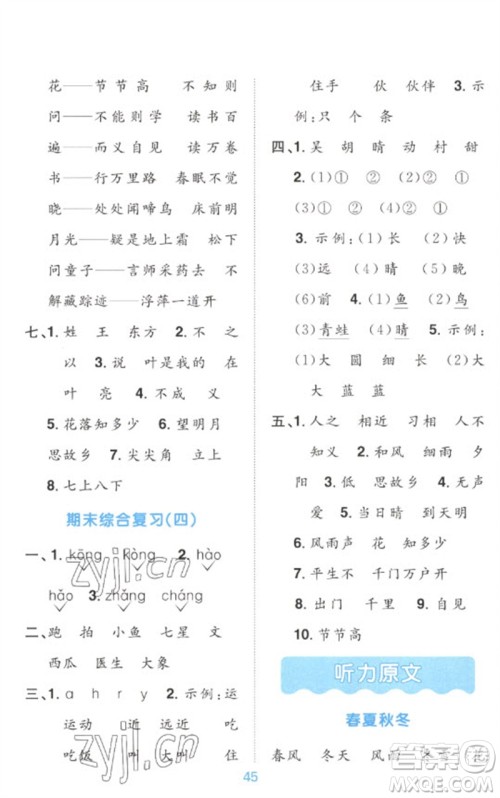 花——节节高 不知则
问——不能则学 读书百
遍——而义自见 读万卷
书——行万里路 春眠不觉
晓——处处闻啼鸟 床前明
月光——疑是地上霜 松下
问童子——言师采药去 不
解藏踪迹——浮萍一道开
七、1. 姓 王 东方 2. 不 之
以 3. 说 叶是我的 在
叶 亮 4. 不 成 义
5. 花落知多少 6. 望明月
思故乡 7. 尖尖角 立上头
8. 七上八下
期末综合复习(四)
一、1. kōng kòng 2. hào
hǎo 3. zhǎng cháng
二、跑 拍 小鱼 七星 文
西瓜 医生 大象
三、1. a h r y 2. 示例:运
运动 近 远近 吃
吃饭 叫 大叫 住
住手 伙 伙伴 3. 示
例:只 个 条
四、1. 吴 胡 晴 动 村 甜
2. (1)① ② (2)② ①
(3)① ② (4)② ①
3. 示例:(1)长 (2)快
(3)远 (4)晴 (5)晚
(6)前 4. (1)鱼 (2)鸟
(3)青蛙 (4)晴 5. 示例:
(1)大 圆 细 长 (2)大
大 蓝 蓝
五、1. 人之 相近 习相 人不
知义 2. 和风 细雨 夕
阳 3. 古今 严寒 无
爱 4. 当空 晴天 5. 床
思故乡 低头
6. 风雨声 花 知多少
7. 平生不 千万门户开
8. 出门 千里 9. 自见
10. 节节高
听力原文
春夏秋冬
春风 冬天 风雨 冬雪 花
45
zyjl.cn
zyjl.cn